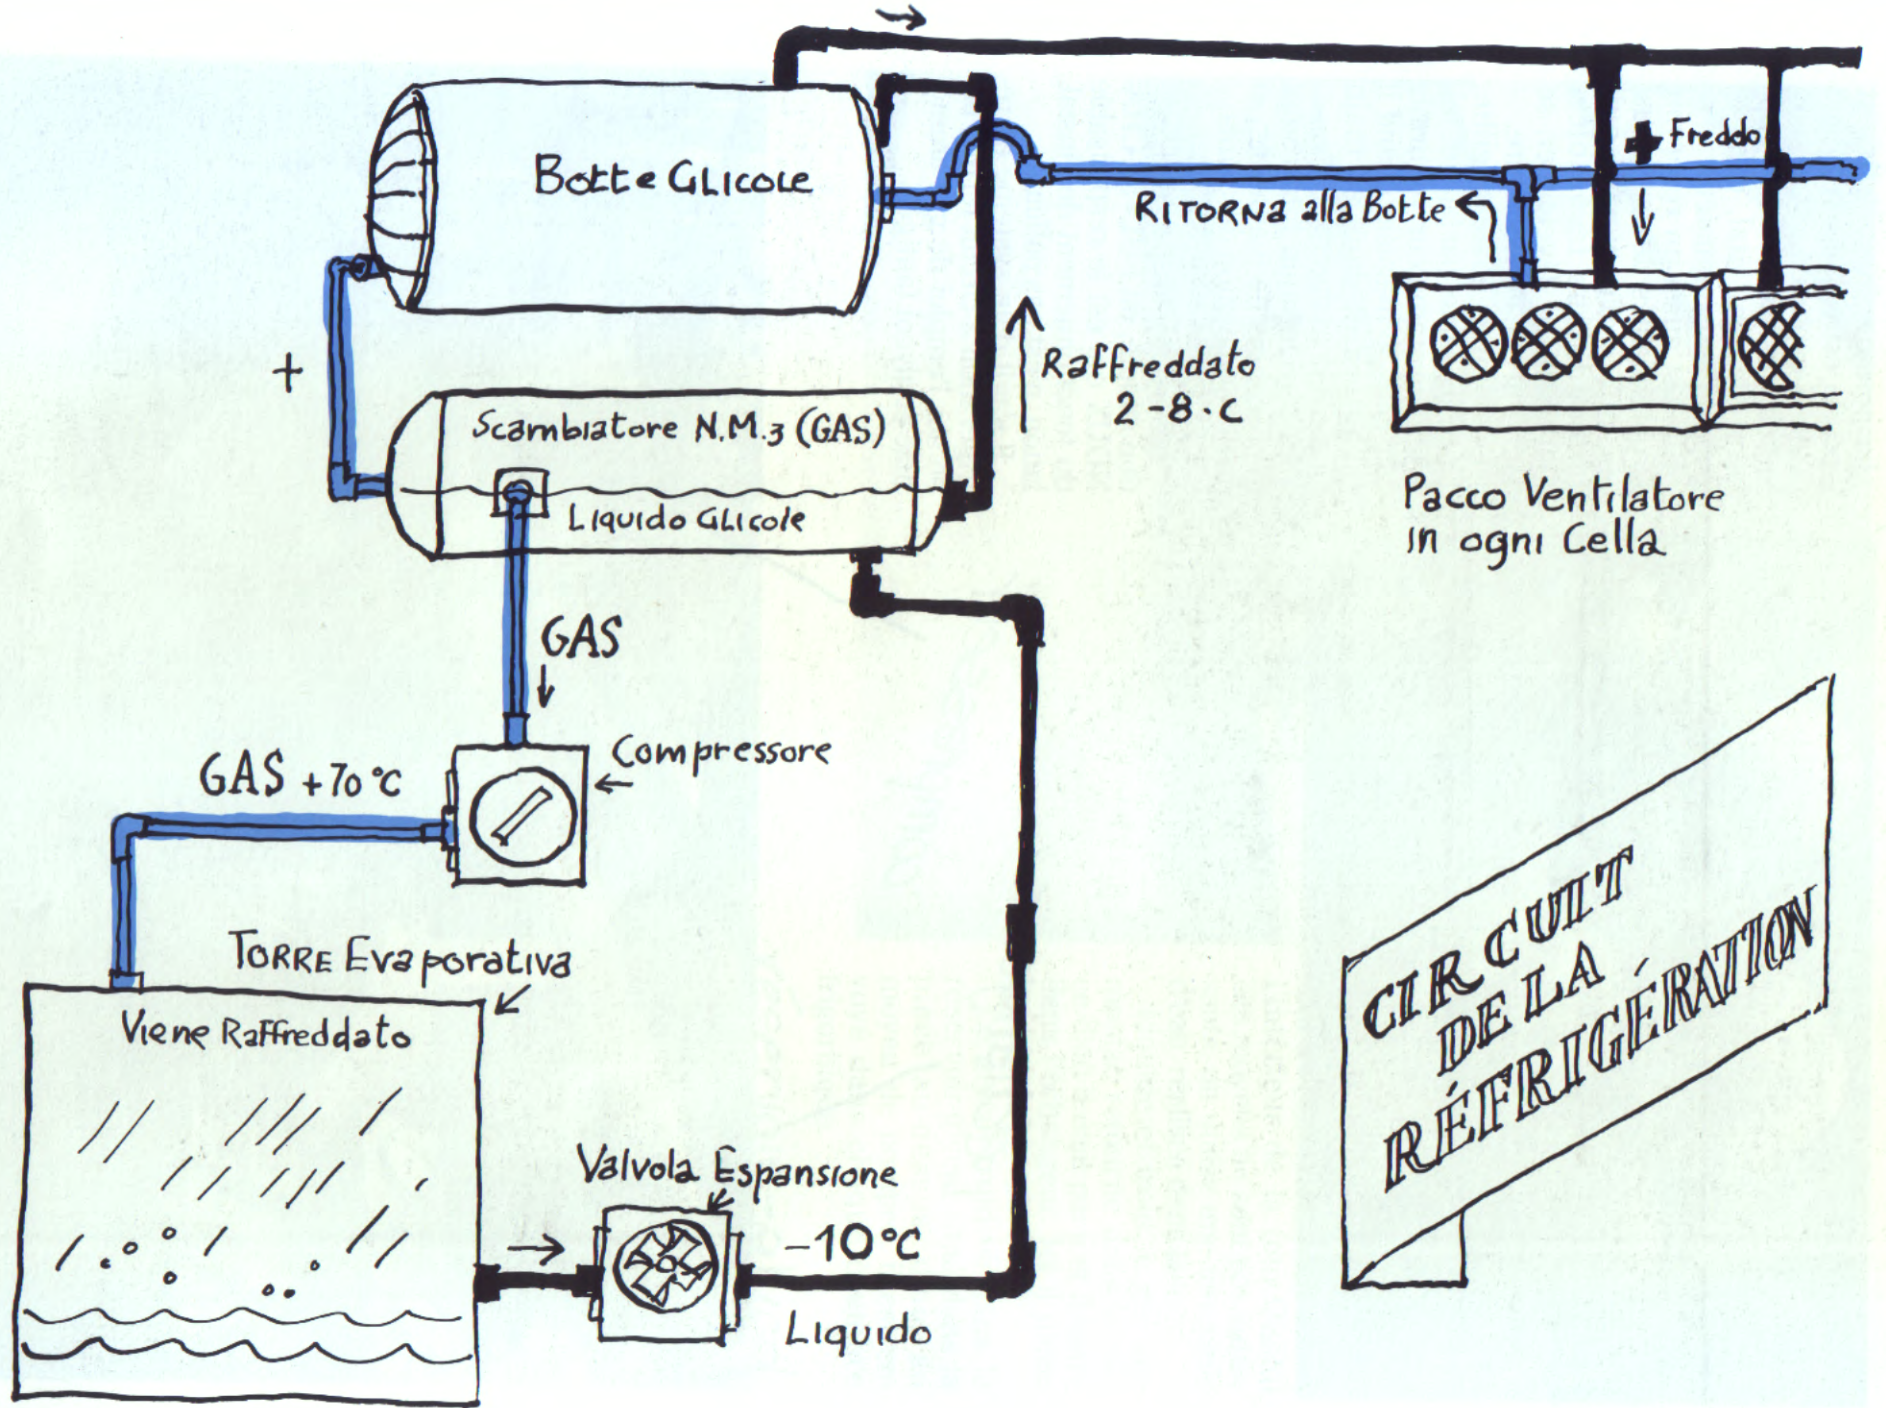 Botte GLICOLE
+ Freddo
RITORNA alla Botte
+
Raffreddato
2-8.C
Scambiatore N.M.3 (GAS)
Liquido GLicole
Pacco Ventilatore
in ogni Cella
GAS
Compressore
GAS +70°C
TORRE Evaporativa
Viene Raffreddato
Valvola Espansione
-10°C
Liquido
CIRCUIT
DE LA
RÉFRIGÉRATION